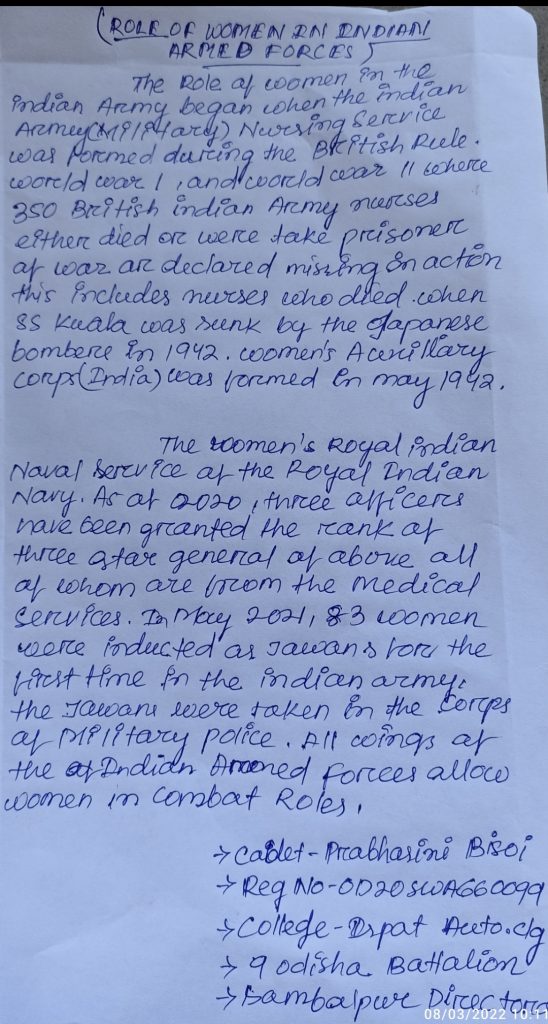 (ROLE OF WOMEN IN INDIAN
ARMED FORCES)
The Role of women in the
indian Army began when the indian
Army(Military) Nursing Service
was formed during the British Rule.
world war 1, and world war 11 where
350 British indian Army nurses
either died or were take prisoner
of war or declared missing in action
this includes nurses who died when
SS Kuala was sunk by the Japanese
bomber in 1942. women's Auxillary
corps(India) was formed in may 1942.
The women's Royal indian
Naval Service of the Royal Indian
Navy. As of 2020, three officers
have been granted the rank of
three star general of above all
of whom are from the medical
services. In May 2021, 83 women
were inducted as Jawans for the
first time in the indian army,
the Jawans were taken in the Corps
of Military police. All wings of
the Indian Armed forces allow
women in Combat Roles.
→ Cadet - Prabhasini Bisoi
→ Reg No - OD20SWA660099
→ College - Ispat Auto. clg
→ 9 odisha Battalion
→ Sambalpur Director
08/03/2022 10:11